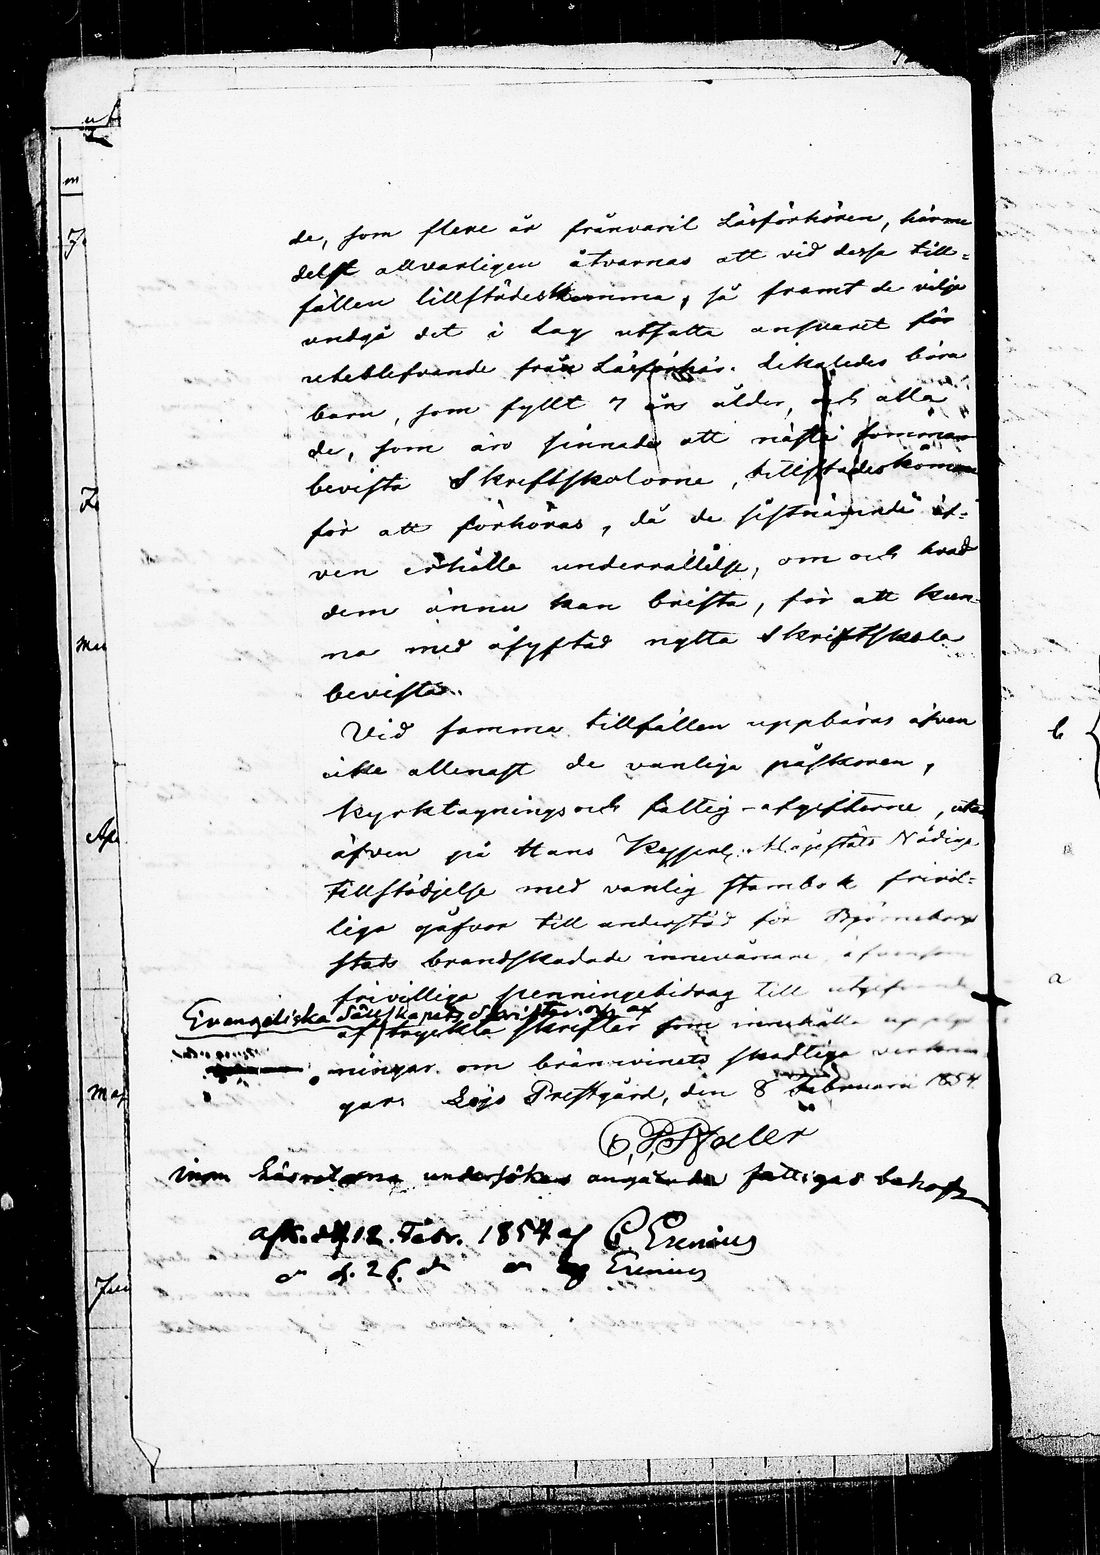 de, som flere år frånvarit Läsförhören, härme
delst allvarligen åtvarnas att vid dessa till=
fällen tillstädeskomma, så framt de vilja
undgå det i Lag utsatta ansvaret för
uteblefvande från Läsförhör. Likaledes böra
barn, som fyllt 7 års ålder, och alla
de, som äro sinnade att nästa sommar
bevista Skriftskolorne, tillstädeskomma
för att förhöras, då de sistnämnde äf=
ven erhålla underrättelse, om och hvad
dem ännu kan brista, för att kun-
na med åsyftad nytta Skriftskola
bevista.
Vid samma tillfällen uppbäras äfven
icke allenast de vanliga påskören,
Kyrktagnings och fattig-afgifterne, utan
äfven på Hans Kejserl. Majestäts Nådiga
tillstädjelse med vanlig stambok frivil=
liga gåfvor till understöd för Björneborgs
stads brandskadade innevånare, äfvensom
frivilliga penningebidrag till utgifvande
Evangeliska Sällskapets Skrifter och af
af tryckta skrifter som innehålla upplys
ningar om bränvinets skadliga verknin
gar. Lojo Prestgård, den 8 Februari 1854
inom Läsrotarna undersökes angående fattigas behof
afk. d. 12. Febr. 1854 af C. Erenius
d. 26. Erenius
m
Ap
Maj
Jun
b
a